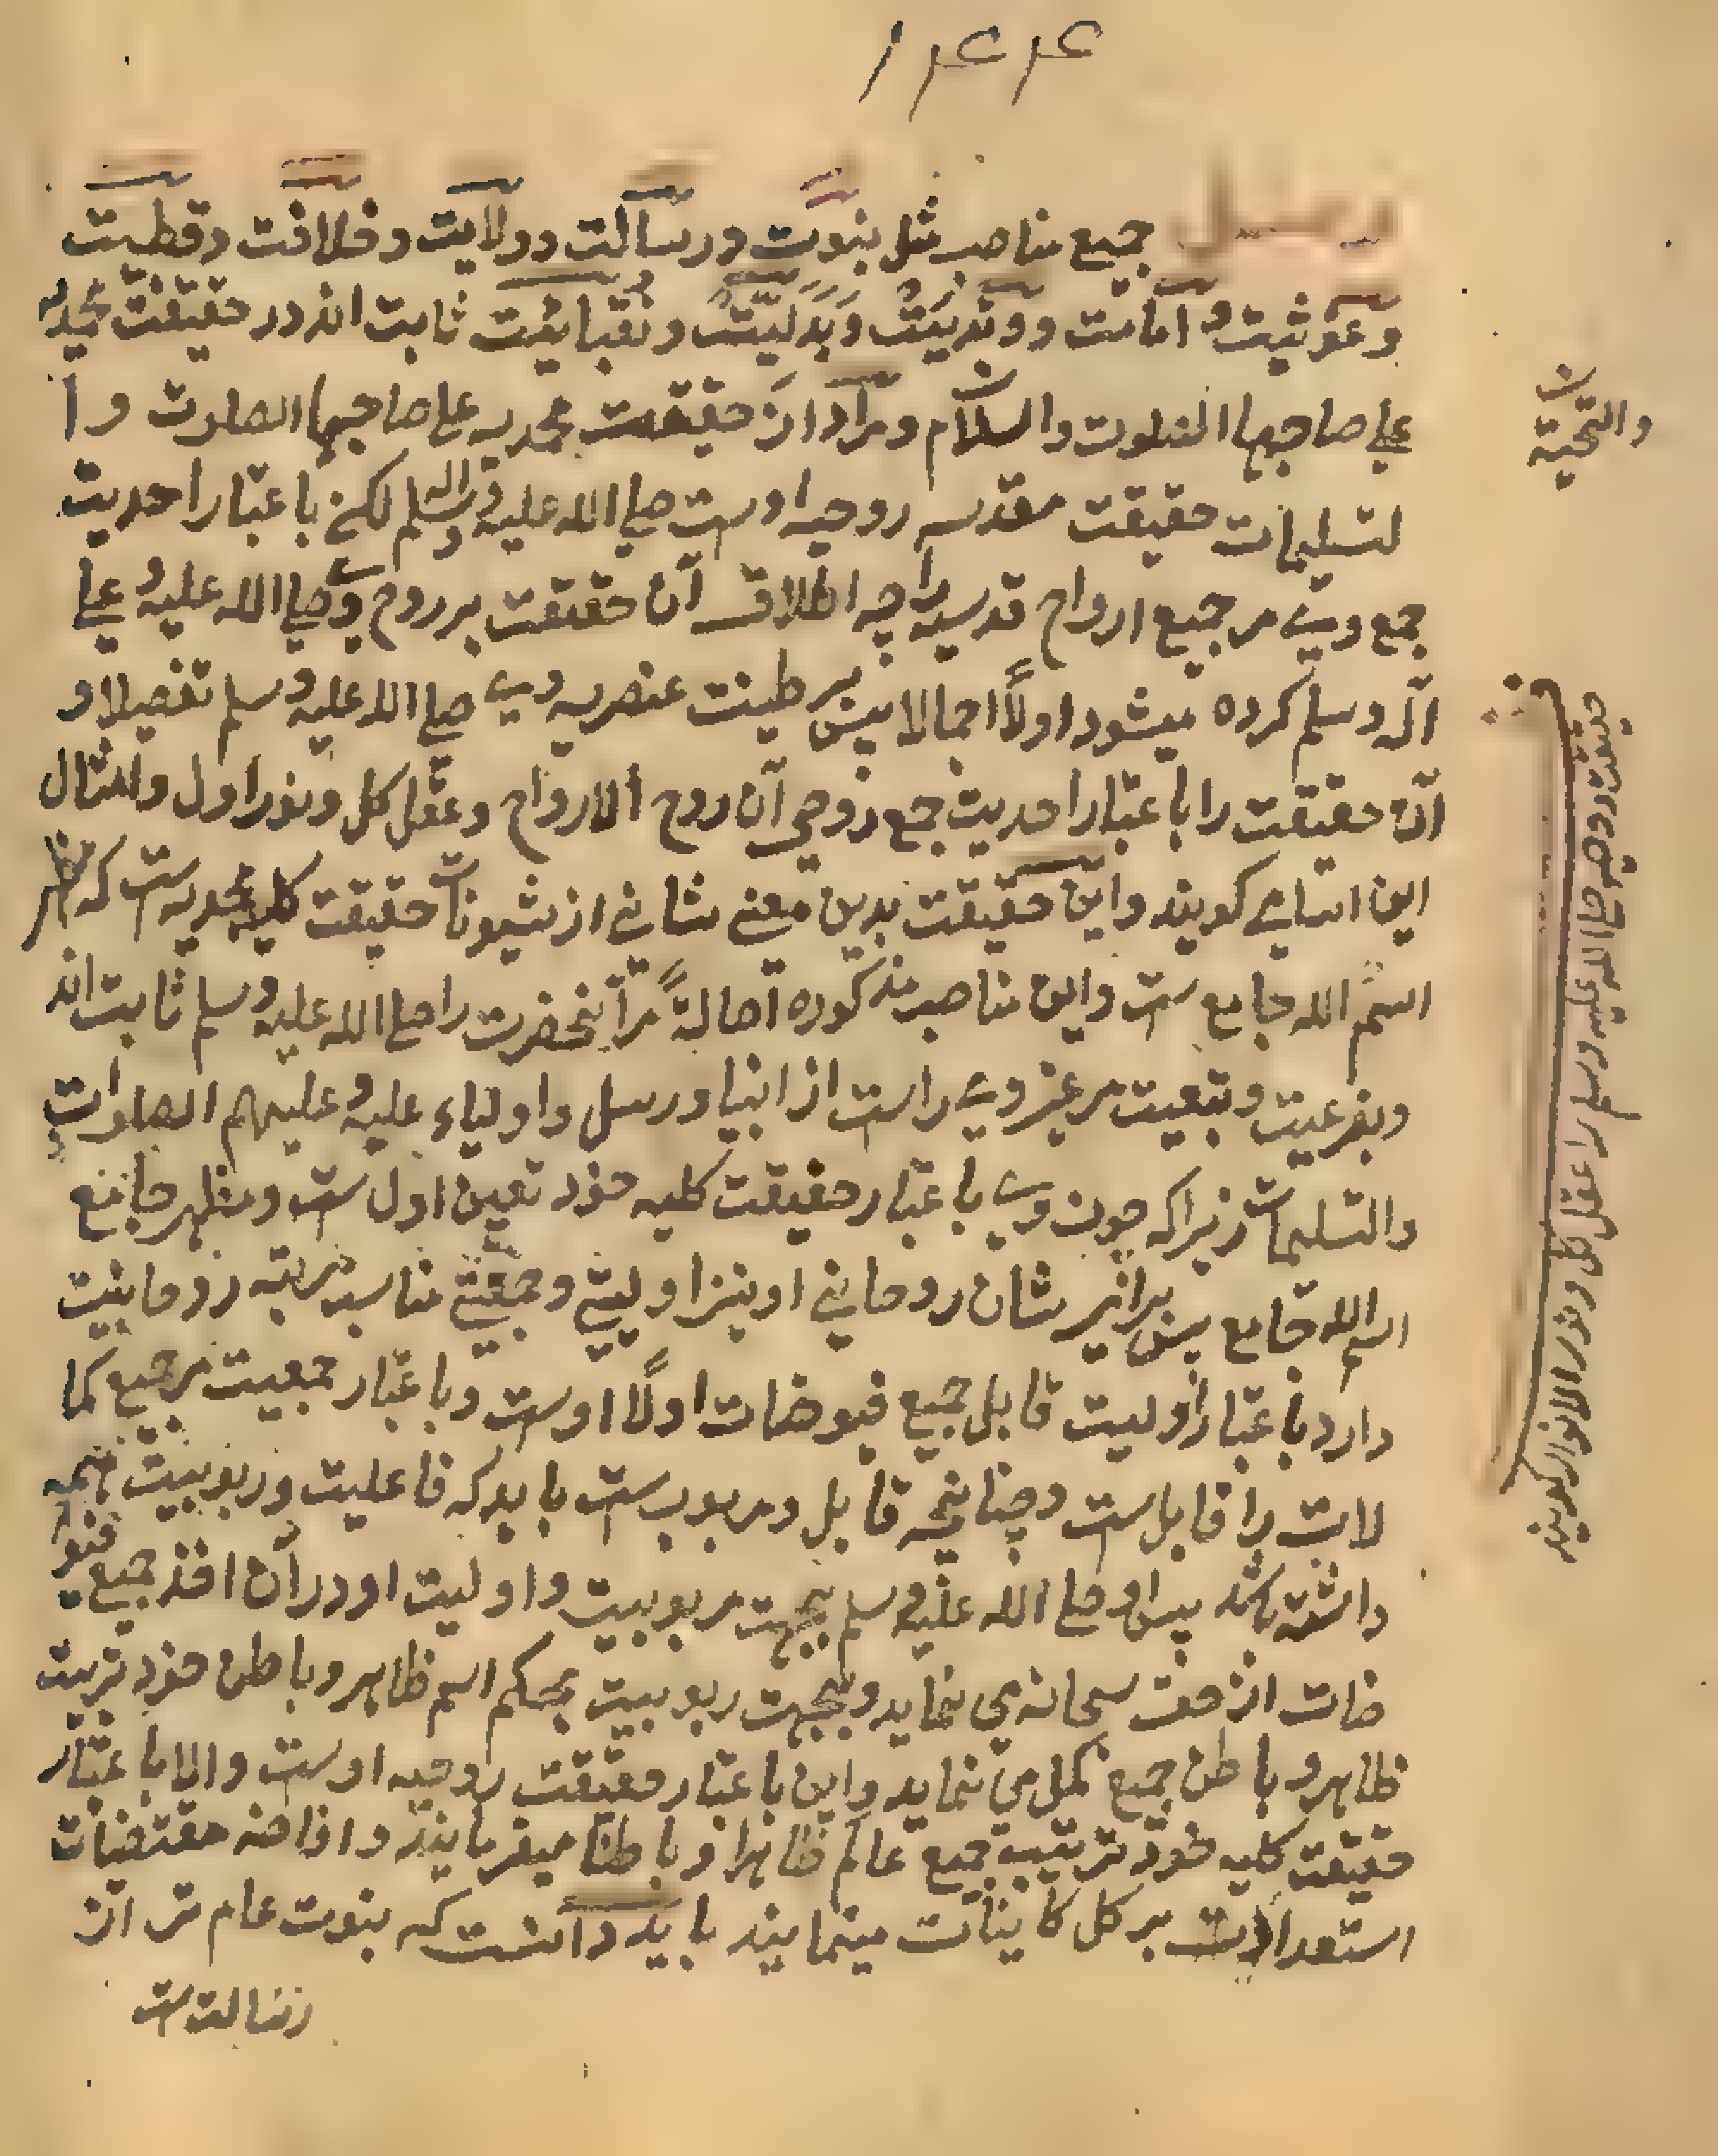 ۱۴۴
وصل جمیع مناصب مثل نبوت و رسالت و ولایت و خلافت و قطبیت
و غوثیت و امامت و وتدیت و بدلیت و نقبائیت ثابت اند در حقیقت محمدیه
علی صاحبها الصلوت والسلام و مراد از حقیقت محمدیه علی صاحبها الصلوت و ا
لتسلیمات حقیقت مقدسه روحیه اوست صلی الله علیه و اله وسلم لکن باعتبار احدیت
جمع وی مر جمیع ارواح قدسیه را چه اطلاق آن حقیقت بر روح وی صلی الله علیه و علی
آله وسلم کرده میشود اولاً اجمالا پس بر طینت عنصریه وی صلی الله علیه وسلم تفصیلا و
آن حقیقت را باعتبار احدیت جمع روحی آن روح الارواح و عقل کل و نور اول و امثال
این اسامی کویند و این حقیقت بدین معنی شانی از شیونات حقیقت کلیه محمدیه ست که مظهر
اسم الله جامع ست و این مناصب مذکوره اصالةً مر آنحضرت را صلی الله علیه وسلم ثابت اند
و بفرعیت و تبعیت مر غیر وی راست از انبیا و رسل و اولیاء علیه و علیهم الصلوات
والتسلیمات زیراکه چون وی باعتبار حقیقت کلیه خود تعین اول ست و مظهر جامع
اسم الله جامع پس برای شان روحانی او نیز اولیتی و جمعیتی مناسب مرتبه روحانیت
دارد باعتبار اولیت قابل جمیع فیوضات اولًا اوست و باعتبار جمعیت مر جمیع کما
لات را قابل ست و چنانچه قابل و مربوب ست باید که فاعلیت و ربوبیت همه
داشته باشد پس او صلی الله علیه وسلم بجهت مربوبیت و اولیت او در آن اخذ جمیع فیو
ضات از حق سبحانه می نماید و بجهت ربوبیت بحکم اسم ظاهر و باطن خود تربیت
ظاهر و باطن جمیع کمل می نماید و این باعتبار حقیقت روحیه اوست و الا باعتبار
حقیقت کلیه خود تربیت جمیع عالم ظاهرا و باطنا میفرمایند و افاضه مقتضیات
استعدادات بر کل کاینات مینمایند باید دانست که نبوت عام تر از
رسالت ست
والتحیة
حقیقت روحیه صلی الله علیه وسلم را عقل کل و نور الانوار کویند